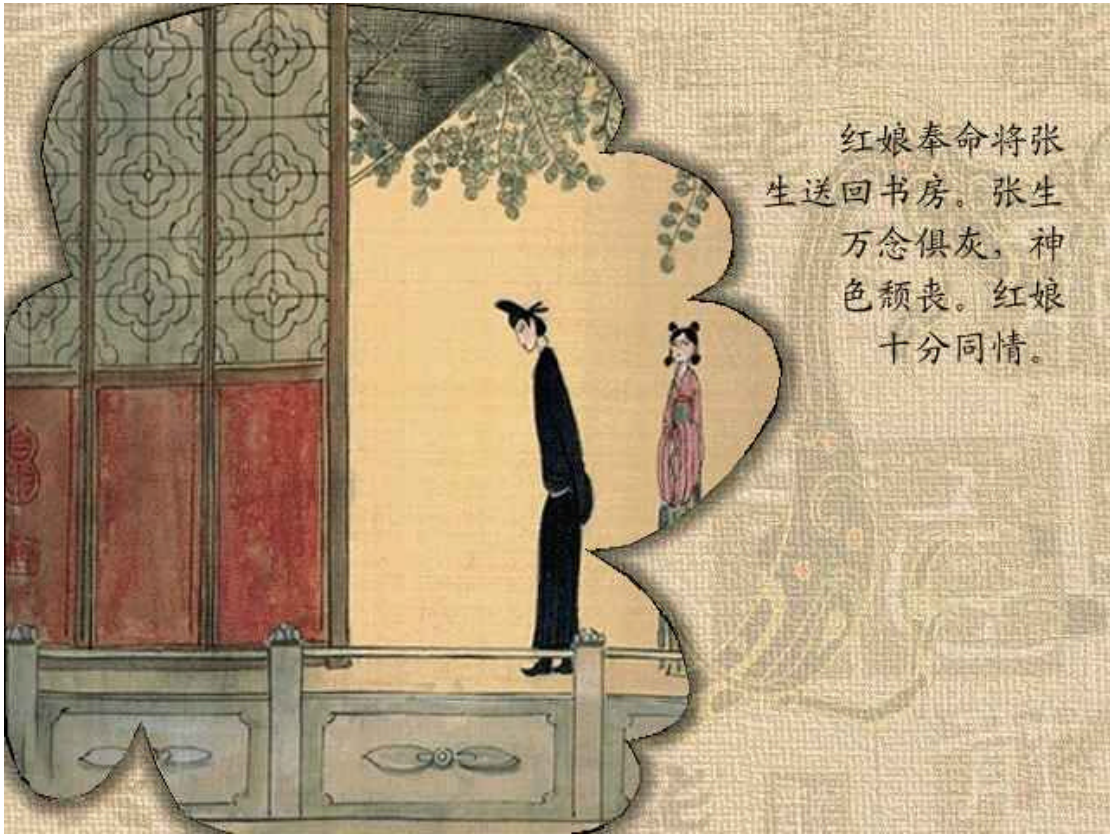 红娘奉命将张
生送回书房。张生
万念俱灰，神
色颓丧。红娘
十分同情。